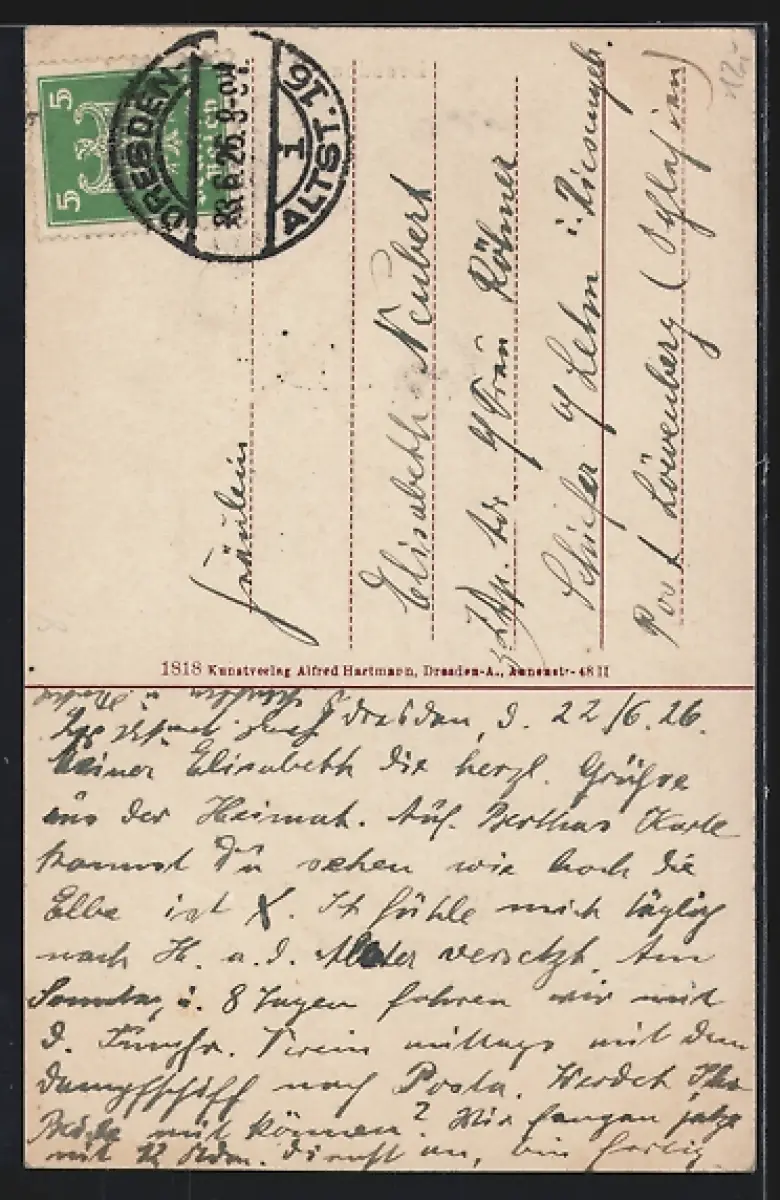 5
5
DRESDEN
ALTST. 16
1
6.26. 8-
Fräulein
Elisabeth Neubert
Frau Röhner
i. Riesengeb.
Post Löwenberg (Schlesien)
1818 Kunstverlag Alfred Hartmann, Dresden-A., Annenstr. 48 II
Dresden, d. 22/6.26.
Meiner Elisabeth die herzl. Grüße
aus der Heimat. Auf Berthas Karte
kannst Du sehen wie hoch die
Elbe ist X. Ich fühle mich täglich
nach H. a. d. Alster versetzt. Am
Sonntag ü. 8 Tagen fahren wir mit
d. Jungfr. Verein mittags mit dem
Dampfschiff nach Posta. Werdet Ihr
mit können? Wir fangen jetzt
mit 12 Stdn. Dienst an, bin